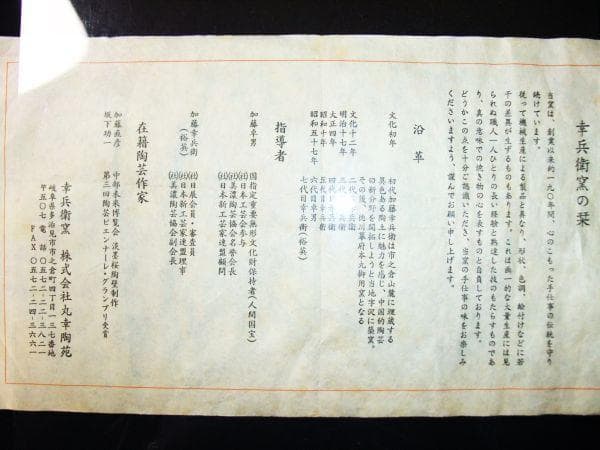 幸兵衛窯の栞
当窯は、創業以来約一九〇年間、心のこもった手仕事の伝統を守り
続けています。
従って機械生産による製品と異なり、形状、色調、絵付けなどに若
干の差異が生ずるものもあります。これは画一的な大量生産には見
られぬ職人一人ひとりの長い経験と熟達した技のもたらすものであ
り、真の意味での焼き物の心を表すものと自負しております。
どうかこの点を十分ご認識いただき、当窯の手仕事の味をお楽しみ
くださいますよう、謹んでお願い申し上げます。
沿革
文化初年 初代加藤幸兵衛は市之倉山麓に埋蔵する
異色ある陶土に魅力を感じ、中国的陶芸
の新分野を開拓しようと当地字沢に築窯。
その後、徳川幕府本丸御用窯となる
文化十二年 二代幸兵衛
明治十七年 三代幸兵衛
大正四年 四代幸兵衛
昭和十年 五代目幸兵衛
昭和五十七年 六代目卓男
七代目幸兵衛(裕英)
指導者
加藤卓男 国指定重要無形文化財保持者(人間国宝)
㈳日本工芸会参与
㈳美濃陶芸協会名誉会長
㈳日本新工芸家連盟顧問
加藤幸兵衛 ㈳日展会員・審査員
(裕英) ㈳日本新工芸家連盟理事
㈳美濃陶芸協会副会長
在籍陶芸作家
加藤直彦 中部未来博覧会 淡墨桜陶壁制作
坂下功一 第三回陶芸ビエンナーレ・グランプリ受賞
幸兵衛窯 株式会社丸幸陶苑
岐阜県多治見市市之倉町四丁目一三七番地
〒五〇七 電話〇五七二-二二-三八二一
FAX 〇五七二-二四-三六六一